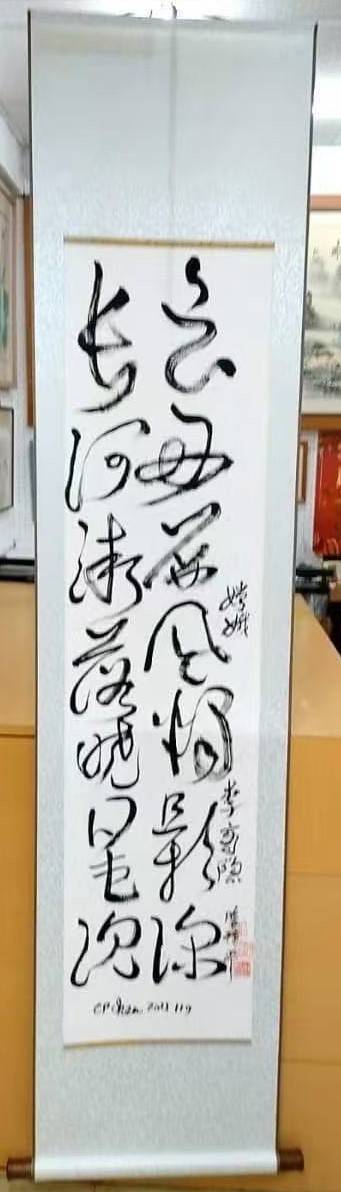 云母屏风烛影深
长河渐落晓星沉
嫦娥
李商隐
CP Chan